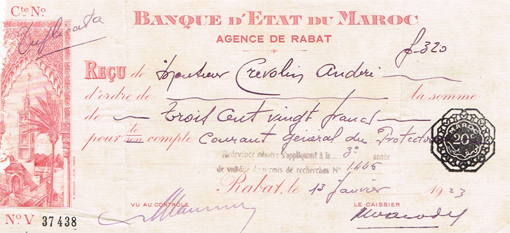 Cte No
Duplicata
BANQUE D'ETAT DU MAROC
AGENCE DE RABAT
f. 320
REÇU de Monsieur Crevolin André
d'ordre de la somme
de Trois cent vingt francs
pour le son compte Courant général du Protectorat
Redevance minière s'appliquant à la 3e année
de validité du permis de recherches No 1446
Rabat, le 13 Janvier 1923
VU AU CONTRÔLE
LE CAISSIER
No V 37438
20c